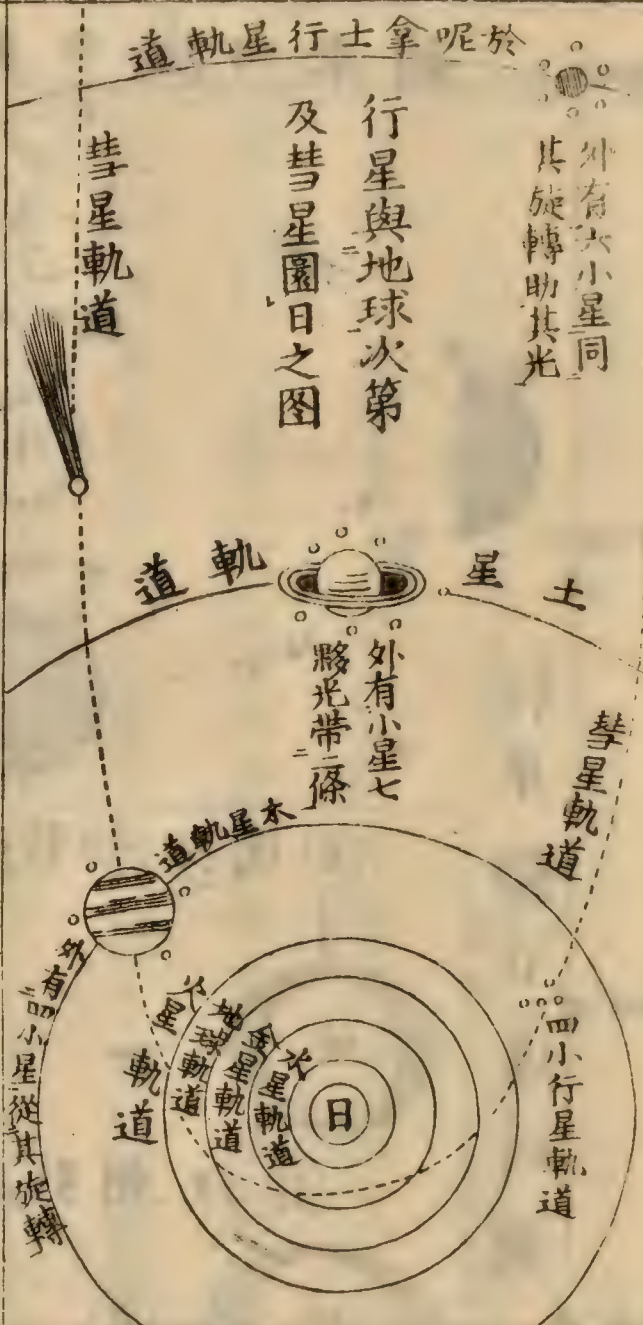 於呢拿士行星軌道
外有六小星同
其旋轉助其光
行星與地球次第
及彗星圜日之图
彗星軌道
土星軌道
外有小星七
夥光帶二條
彗星軌道
木星軌道
外有四小星從其旋轉
四小行星軌道
日
水星軌道
金星軌道
地球軌道
火星軌道